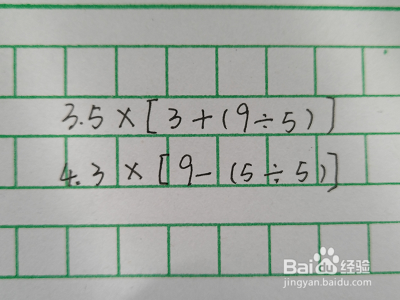 3.5×[3+(9÷5)]
4.3×[9-(5÷5)]
Baidu经验
jingyan.baidu.com